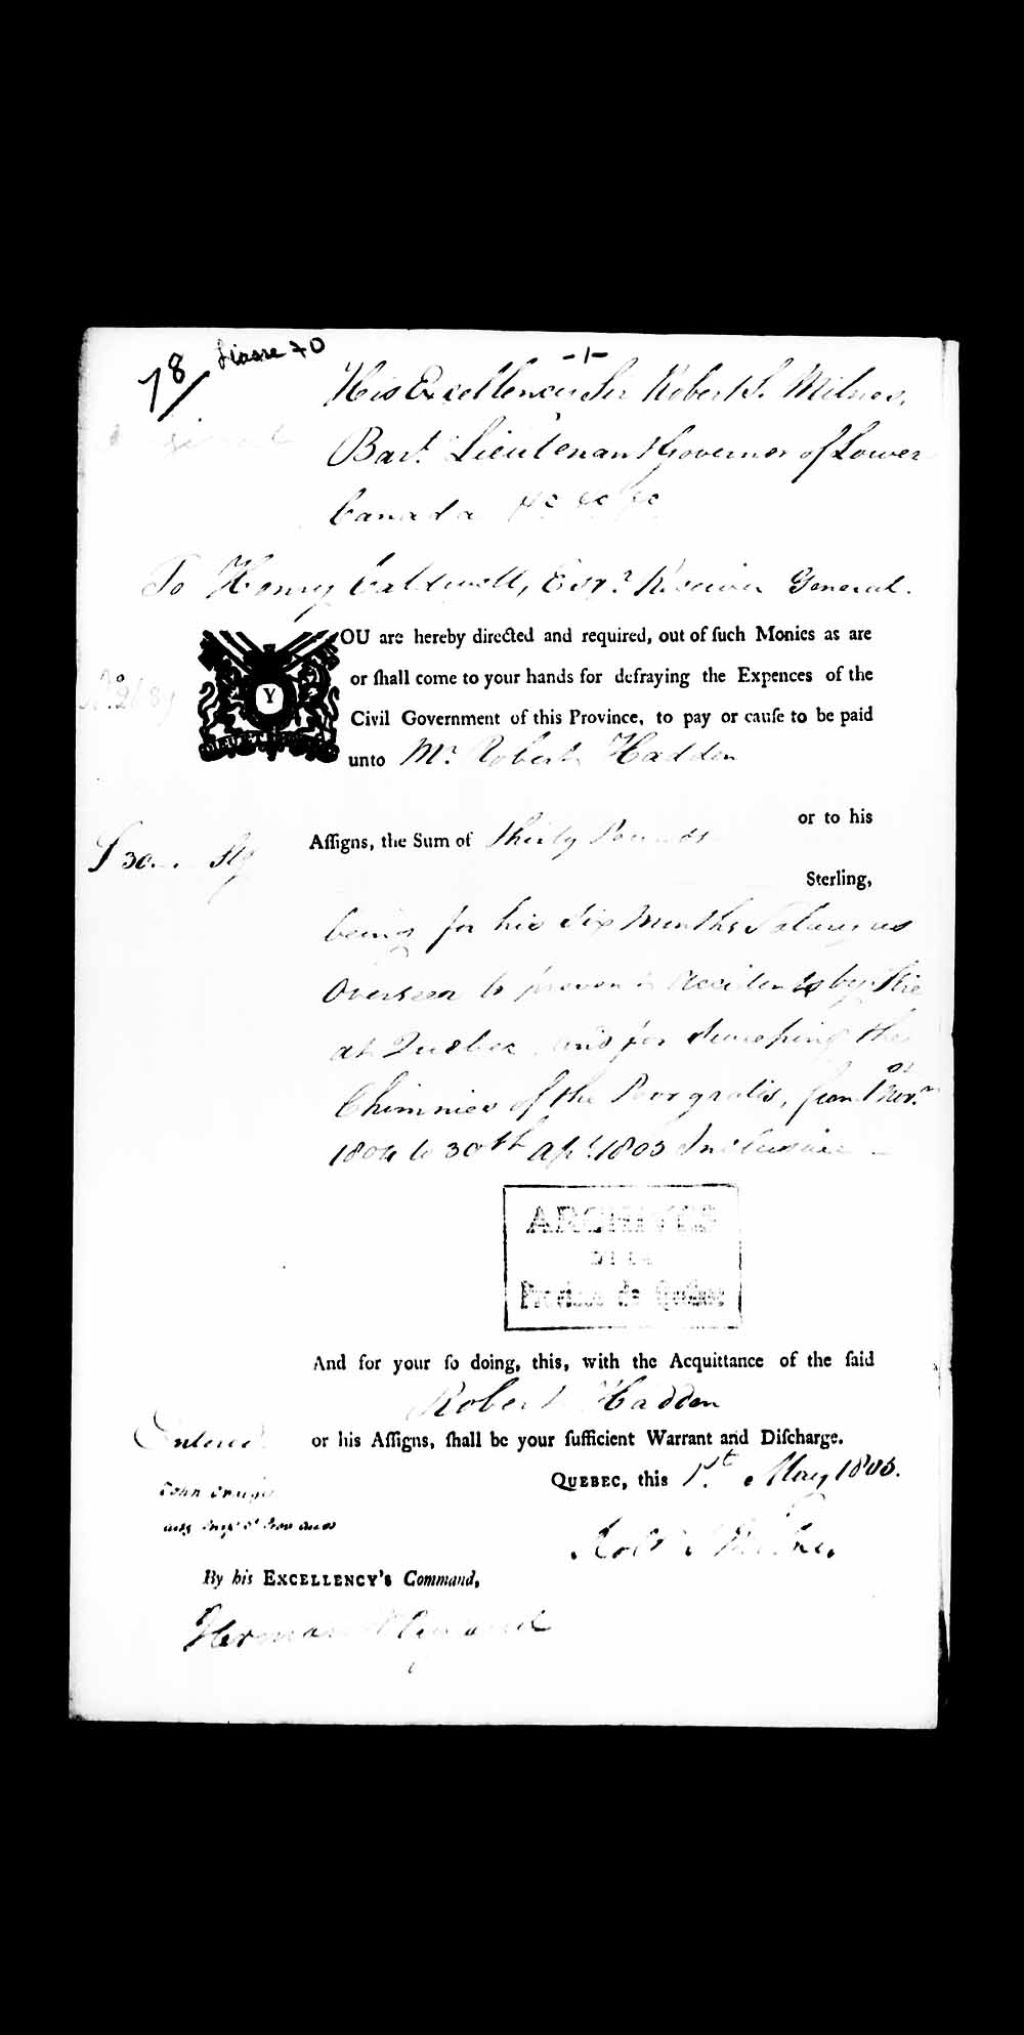 78/
Liasse 70
-1-
His Excellency Sir Robert S. Milnes,
Bart. Lieutenant Governor of Lower
Canada &c &c &c
To Henry Caldwell, Esqr. Receiver General.
YOU are hereby directed and required, out of ſuch Monies as are
or ſhall come to your hands for defraying the Expences of the
Civil Government of this Province, to pay or cauſe to be paid
unto Mr. Robert Hadden
or to his
£30.. Stg
Aſſigns, the Sum of Thirty Pounds
Sterling,
being for his Six Months Salary as
Overseer to prevent Accidents by Fire
at Quebec and for Sweeping the
Chimnies of the Poor gratis, from 1st Novr.
1804 to 30th Apl. 1805 Inclusive
ARCHIVES
DE LA
Province de Québec
And for your ſo doing, this, with the Acquittance of the ſaid
Robert Hadden
or his Aſſigns, ſhall be your ſufficient Warrant and Diſcharge.
Entered
QUEBEC, this 1st. May 1805.
John Craigie
Robt S Milnes
By his EXCELLENCY's Command,
Herman